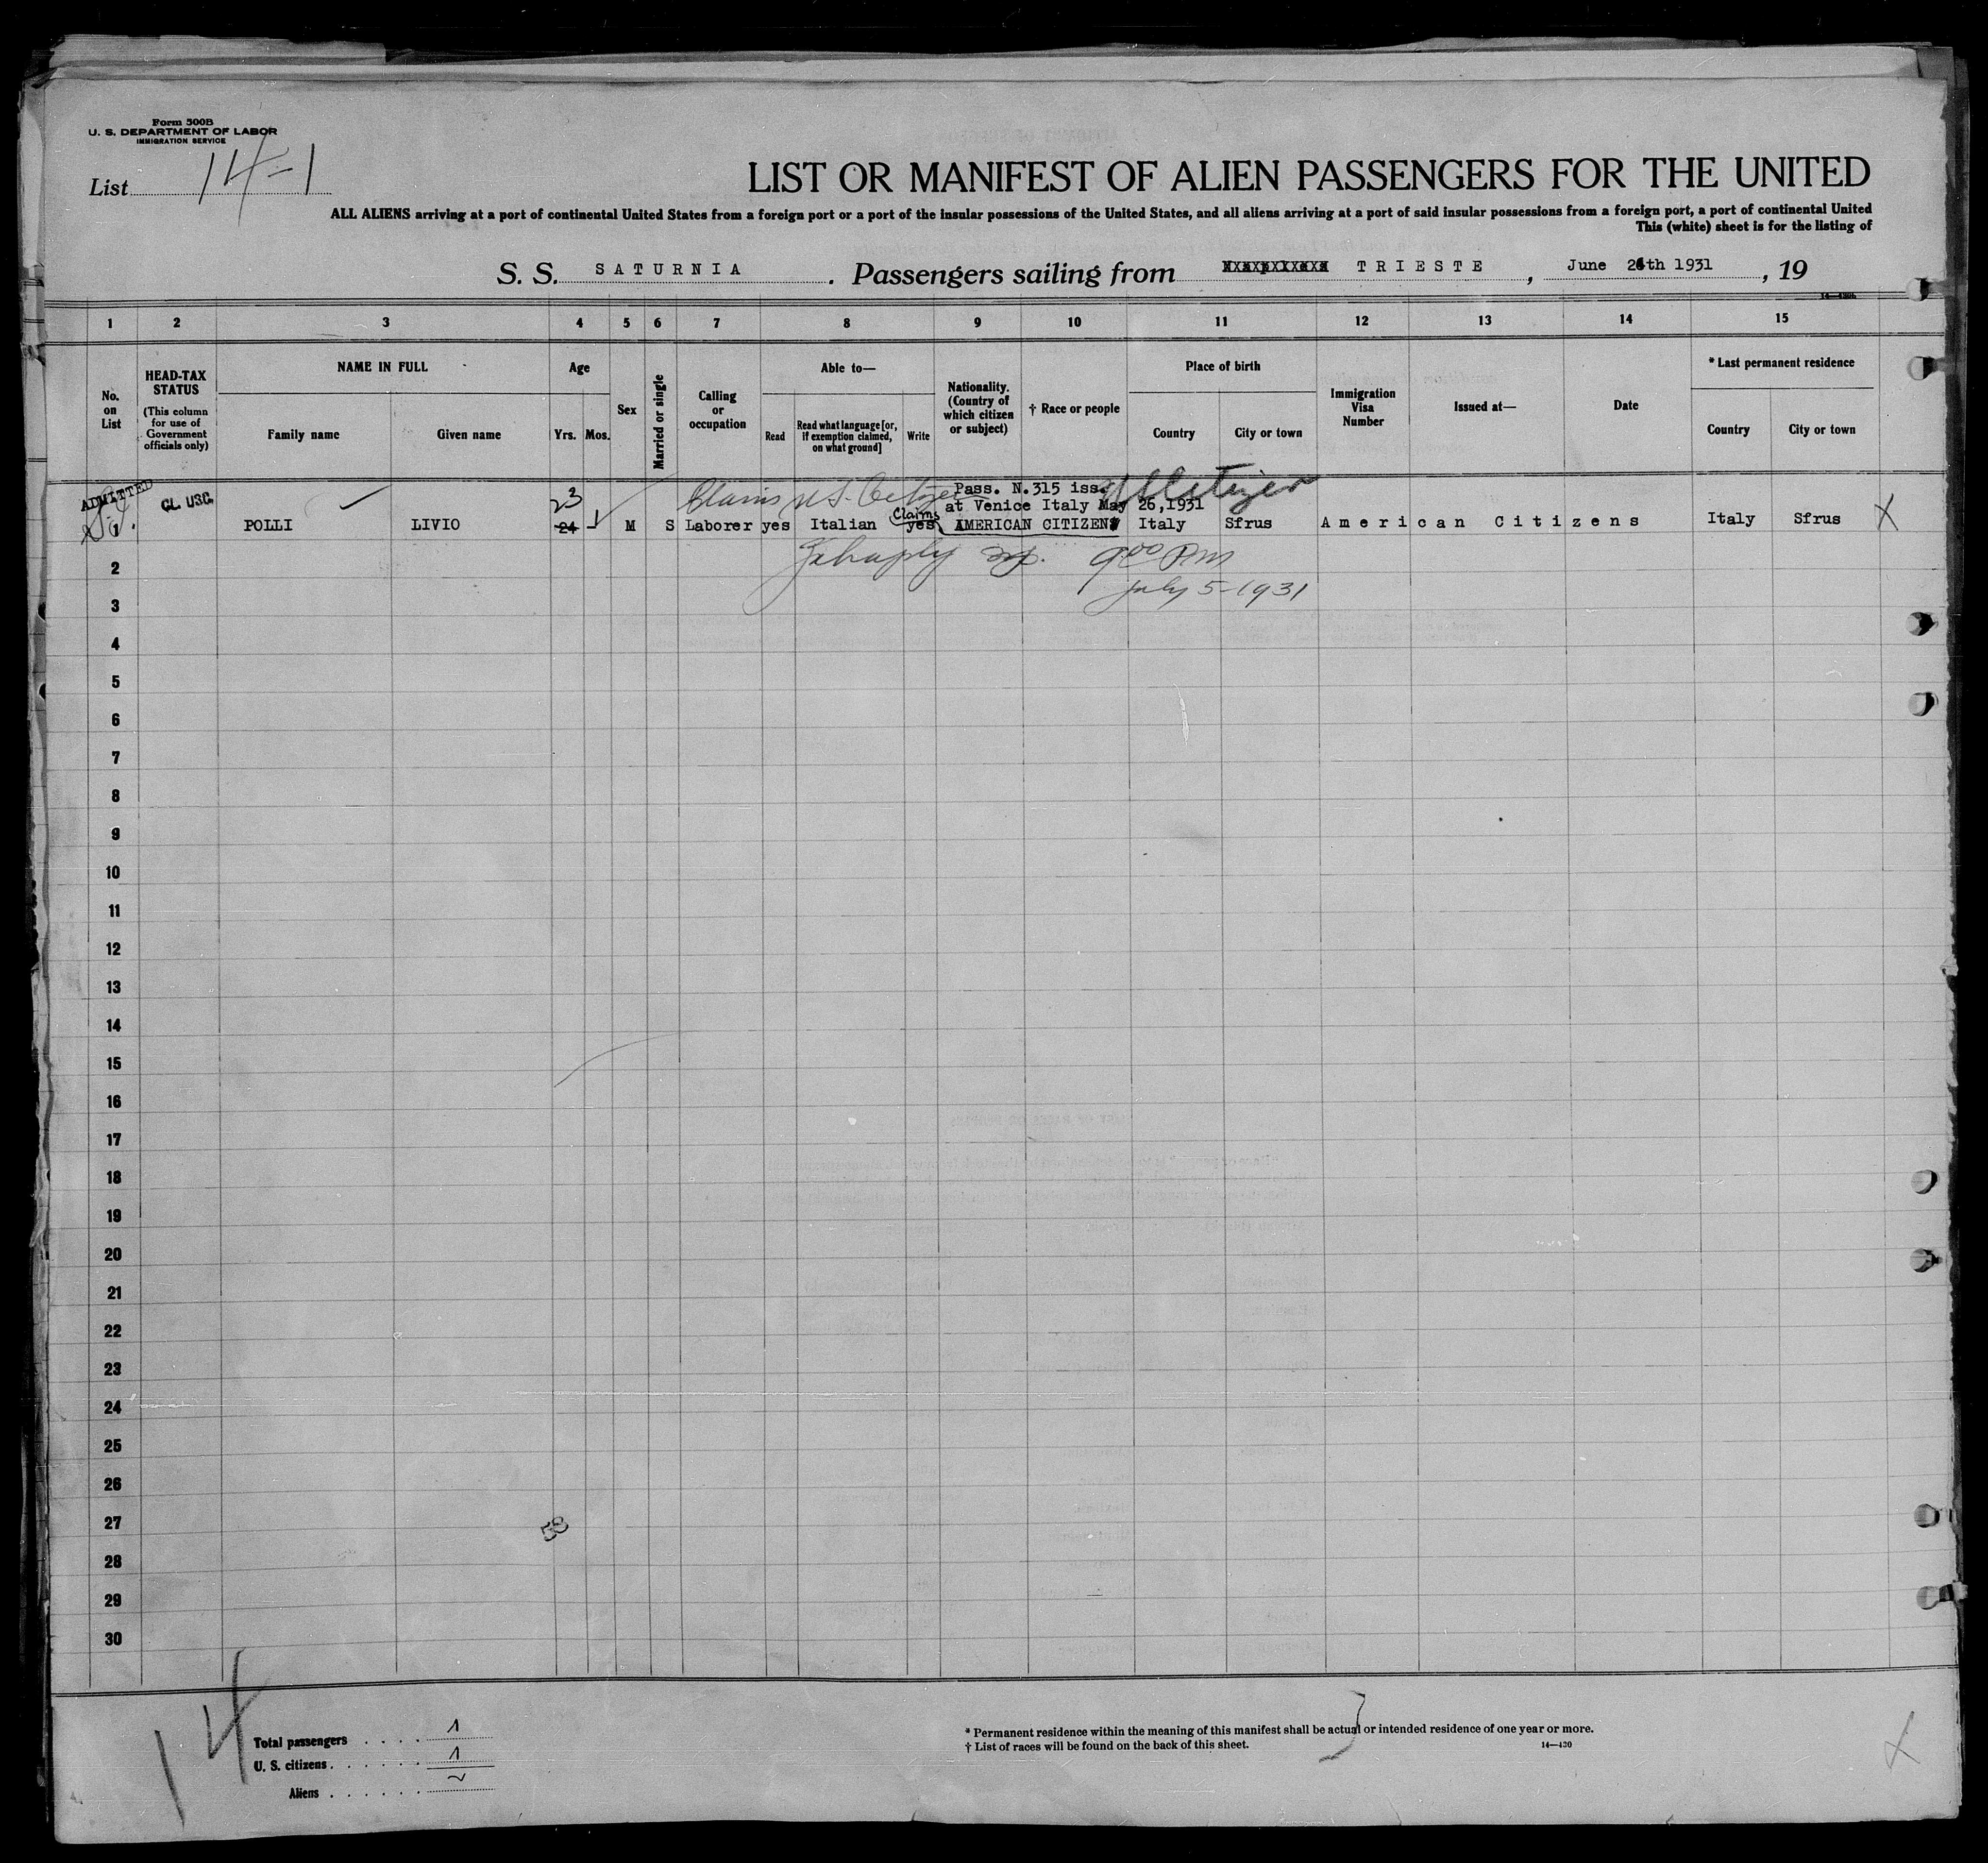 Form 500B
U. S. DEPARTMENT OF LABOR
IMMIGRATION SERVICE
List 14-1
LIST OR MANIFEST OF ALIEN PASSENGERS FOR THE UNITED
ALL ALIENS arriving at a port of continental United States from a foreign port or a port of the insular possessions of the United States, and all aliens arriving at a port of said insular possessions from a foreign port, a port of continental United
This (white) sheet is for the listing of
S. S. SATURNIA. Passengers sailing from TRIESTE, June 26th 1931, 19
1 2 3 4 5 6 7 8 9 10 11 12 13 14 15
No. on List
HEAD-TAX STATUS
(This column for use of Government officials only)
NAME IN FULL
Family name Given name
Age
Yrs. Mos.
Sex
Married or single
Calling or occupation
Able to—
Read
Read what language [or, if exemption claimed, on what ground]
Write
Nationality. (Country of which citizen or subject)
† Race or people
Place of birth
Country City or town
Immigration Visa Number
Issued at—
Date
* Last permanent residence
Country City or town
ADMITTED
CL. USC.
23
Claims U.S. Citizen
Pass. N.315 iss.
at Venice Italy May 26,1931
1 POLLI LIVIO 24 M S Laborer yes Italian Claims yes AMERICAN CITIZEN Italy Sfrus American Citizens Italy Sfrus X
9 00 PM
July 5-1931
2
3
4
5
6
7
8
9
10
11
12
13
14
15
16
17
18
19
20
21
22
23
24
25
26
27
58
28
29
30
14
Total passengers 1
U. S. citizens 1
Aliens ~
* Permanent residence within the meaning of this manifest shall be actual or intended residence of one year or more.
† List of races will be found on the back of this sheet.
14—430